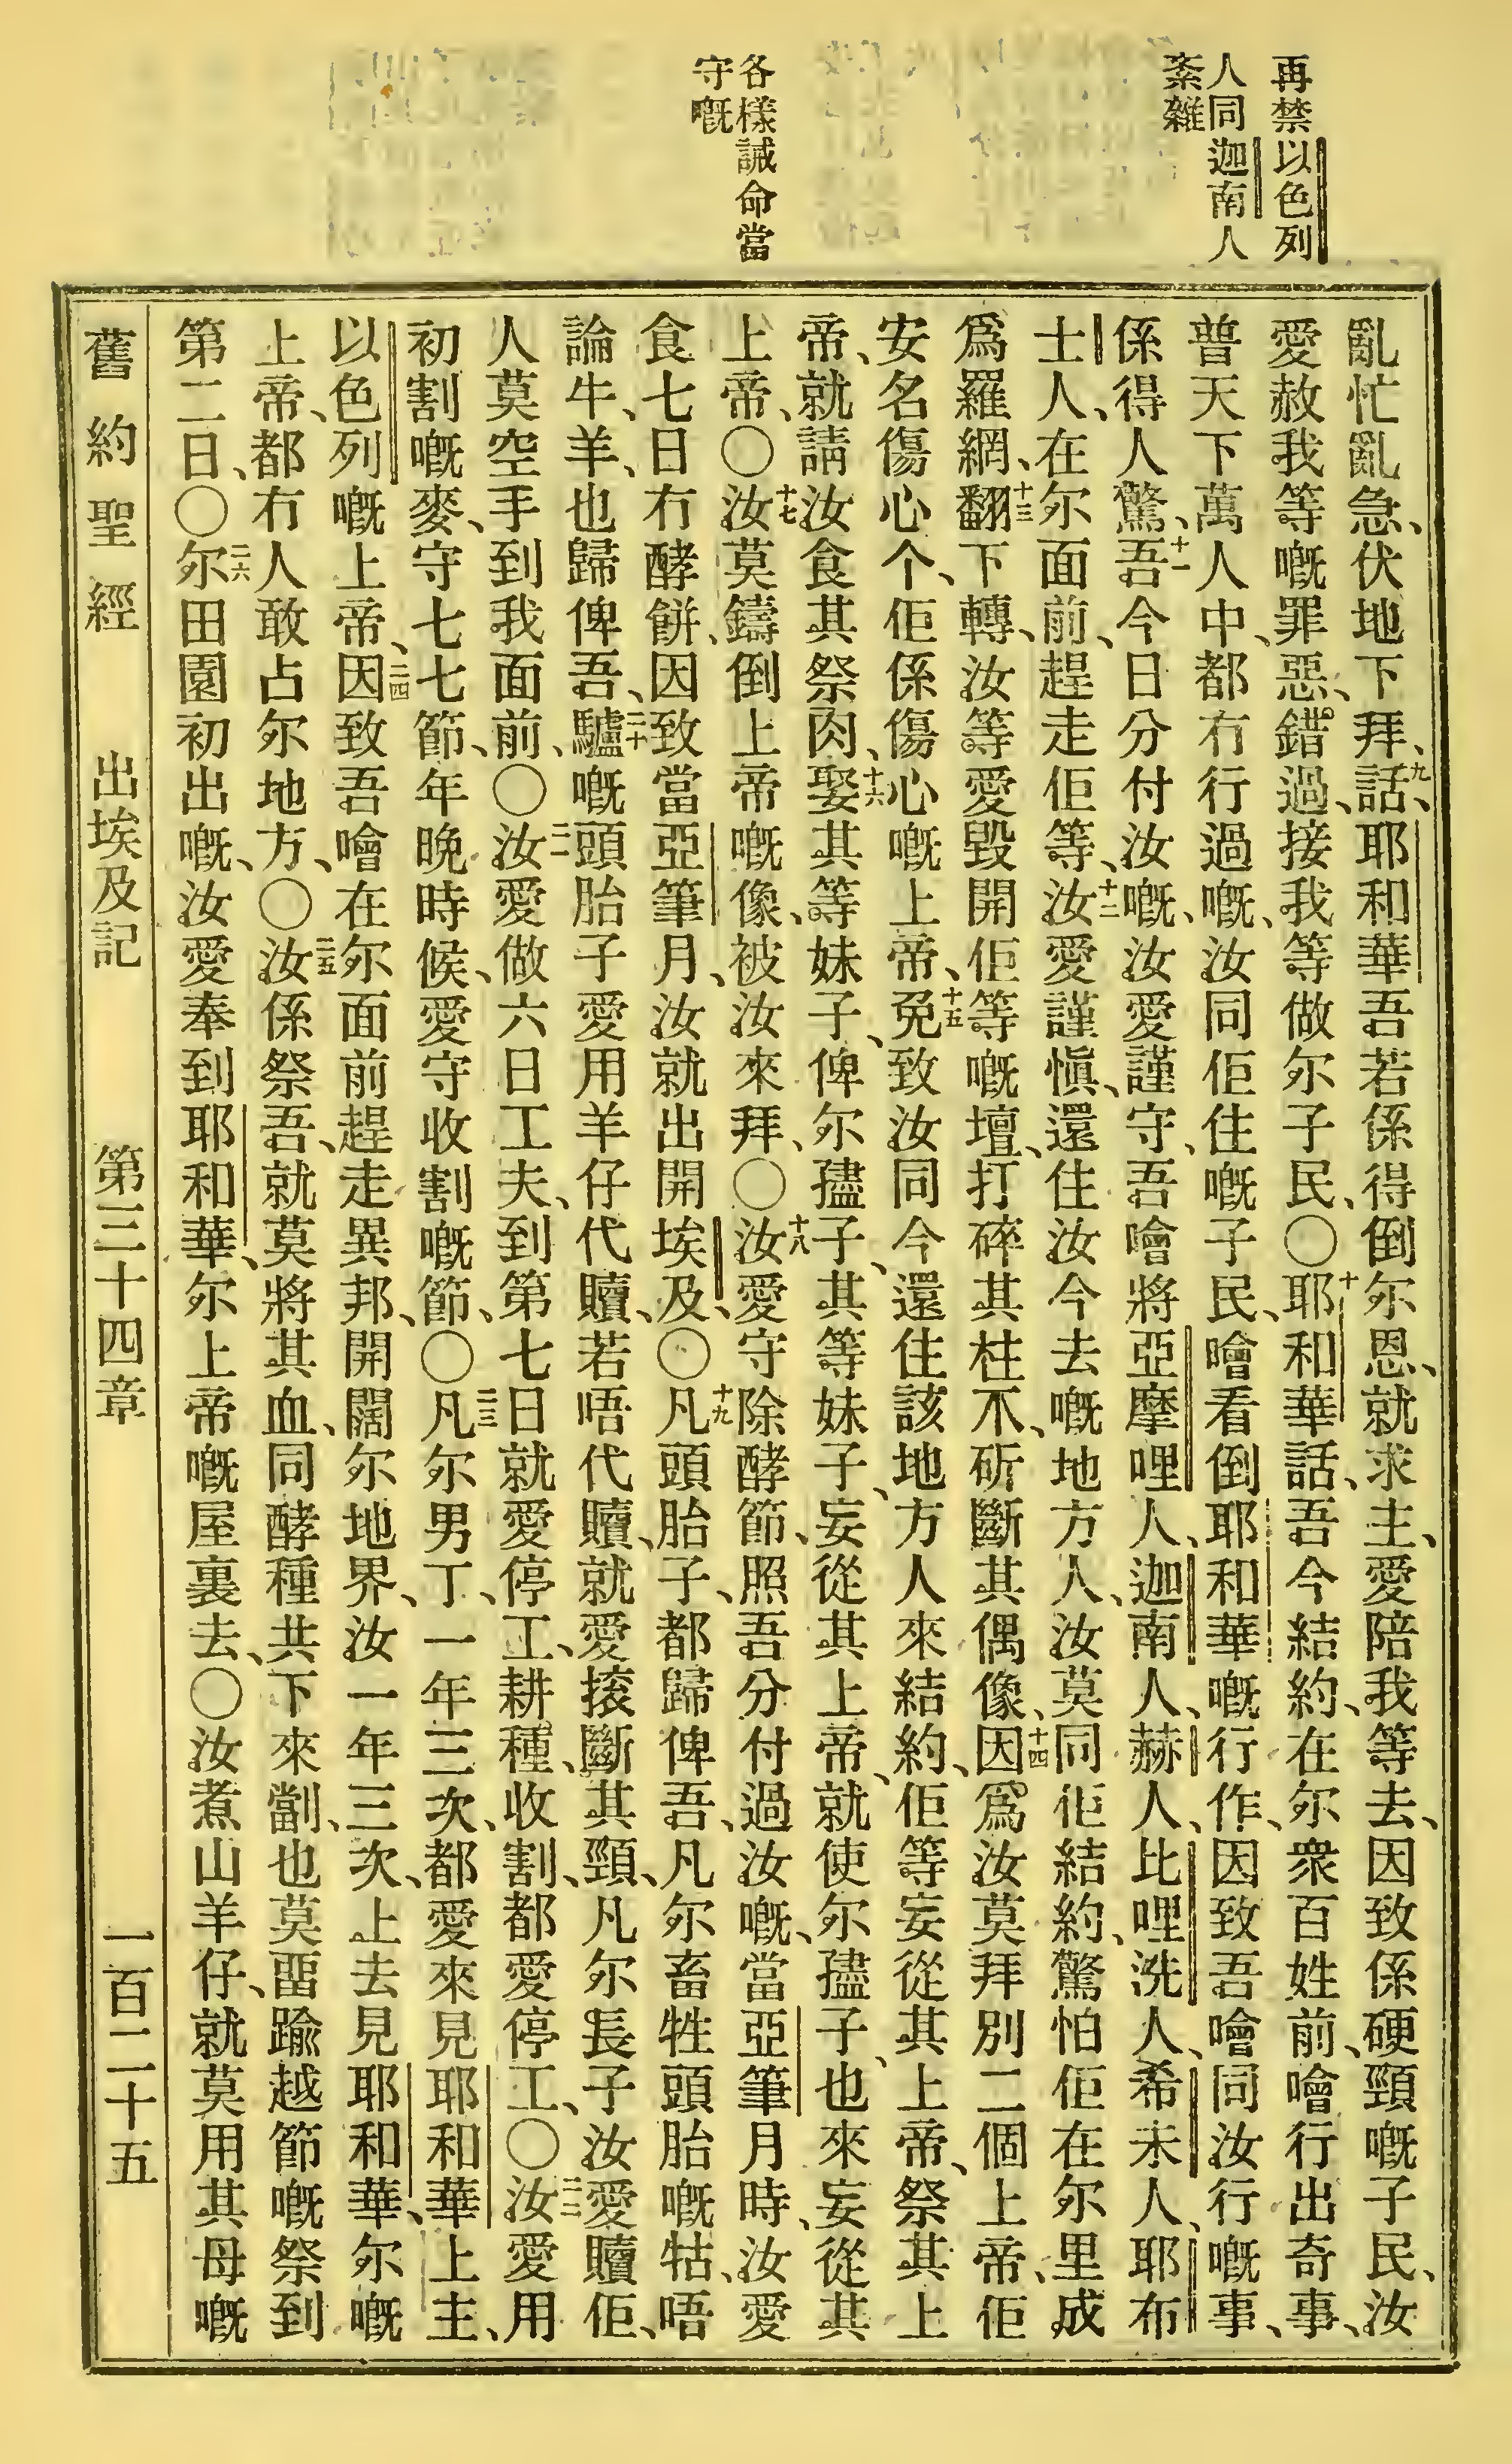 再禁以色列
人同迦南人
紊雜
各樣誡命當
守嘅
亂忙亂急、伏地下拜、九話、耶和華吾若係得倒尔恩、就求主、愛陪我等去、因致係硬頸嘅子民、汝
愛赦我等嘅罪惡、錯過、接我等做尔子民、〇十耶和華話、吾今結約、在尔衆百姓前、噲行出奇事、
普天下萬人中、都冇行過嘅、汝同佢住嘅子民、噲看倒耶和華嘅行作、因致吾噲同汝行嘅事、
係得人驚、十一吾今日分付汝嘅、汝愛謹守、吾噲將亞摩哩人、迦南人、赫人、比哩洗人、希未人、耶布
士人、在尔面前、趕走佢等、十二汝愛謹愼、還住汝今去嘅地方人、汝莫同佢結約、驚怕佢在尔里成
爲羅網、十三翻下轉、汝等愛毀開佢等嘅壇、打碎其柱、斫斷其偶像、十四因爲汝莫拜別二個上帝、佢
安名傷心个、佢係傷心嘅上帝、十五免致汝同今還住該地方人來結約、佢等妄從其上帝、祭其上
帝、就請汝食其祭肉、十六娶其等妹子、俾尔孻子、其等妹子、妄從其上帝、就使尔孻子、也來妄從其
上帝、〇十七汝莫鑄倒上帝嘅像、被汝來拜、〇十八汝愛守除酵節、照吾分付過汝嘅、當亞筆月時、汝愛
食七日冇酵餅、因致當亞筆月、汝就出開埃及、〇十九凡頭胎子、都歸俾吾、凡尔畜牲頭胎嘅牯、唔
論牛、羊、也歸俾吾、二十驢嘅頭胎子愛用羊仔代贖、若唔代贖、就愛摗斷其頸、凡尔長子汝愛贖佢、
人莫空手到我面前、〇二一汝愛做六日工夫、到第七日就愛停工、耕種、收割、都愛停工、〇二二汝愛用
初割嘅麥、守七七節、年晚時候、愛守收割嘅節、〇二三凡尔男丁、一年三次、都愛來見耶和華上主、
以色列嘅上帝、二四因致吾噲在尔面前趕走異邦、開闊尔地界、汝一年三次、上去見耶和華、尔嘅
上帝、都冇人敢占尔地方、〇二五汝係祭吾、就莫將其血、同酵種共下來劏、也莫畱踰越節嘅祭到
第二日、〇二六尔田園初出嘅、汝愛奉到耶和華、尔上帝嘅屋裏去、〇汝煮山羊仔、就莫用其母嘅
舊約聖經 出埃及記 第三十四章 一百二十五